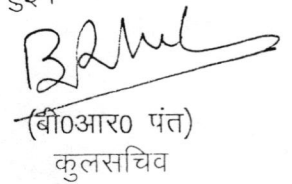 (बी0आर0 पंत)
कुलसचिव